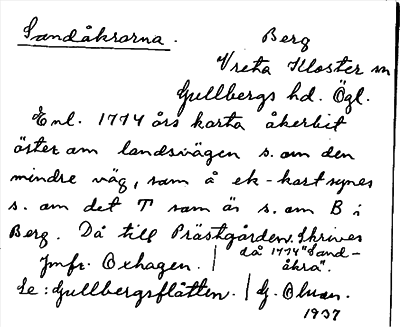 Sandåkrarna. Berg
Vreta Kloster sn
Gullbergs hd. Ögl.
Enl. 1774 års karta åkerbit
öster om landsvägen s. om den
mindre väg, som å ek-kart synes
s. om det T som är s. om B i
Berg. Då till Prästgården. Skrives
då 1774 "Sand-
åkra".
Jmfr. Oxhagen.
Se: Gullbergsflätten. G. Olsson.
1937